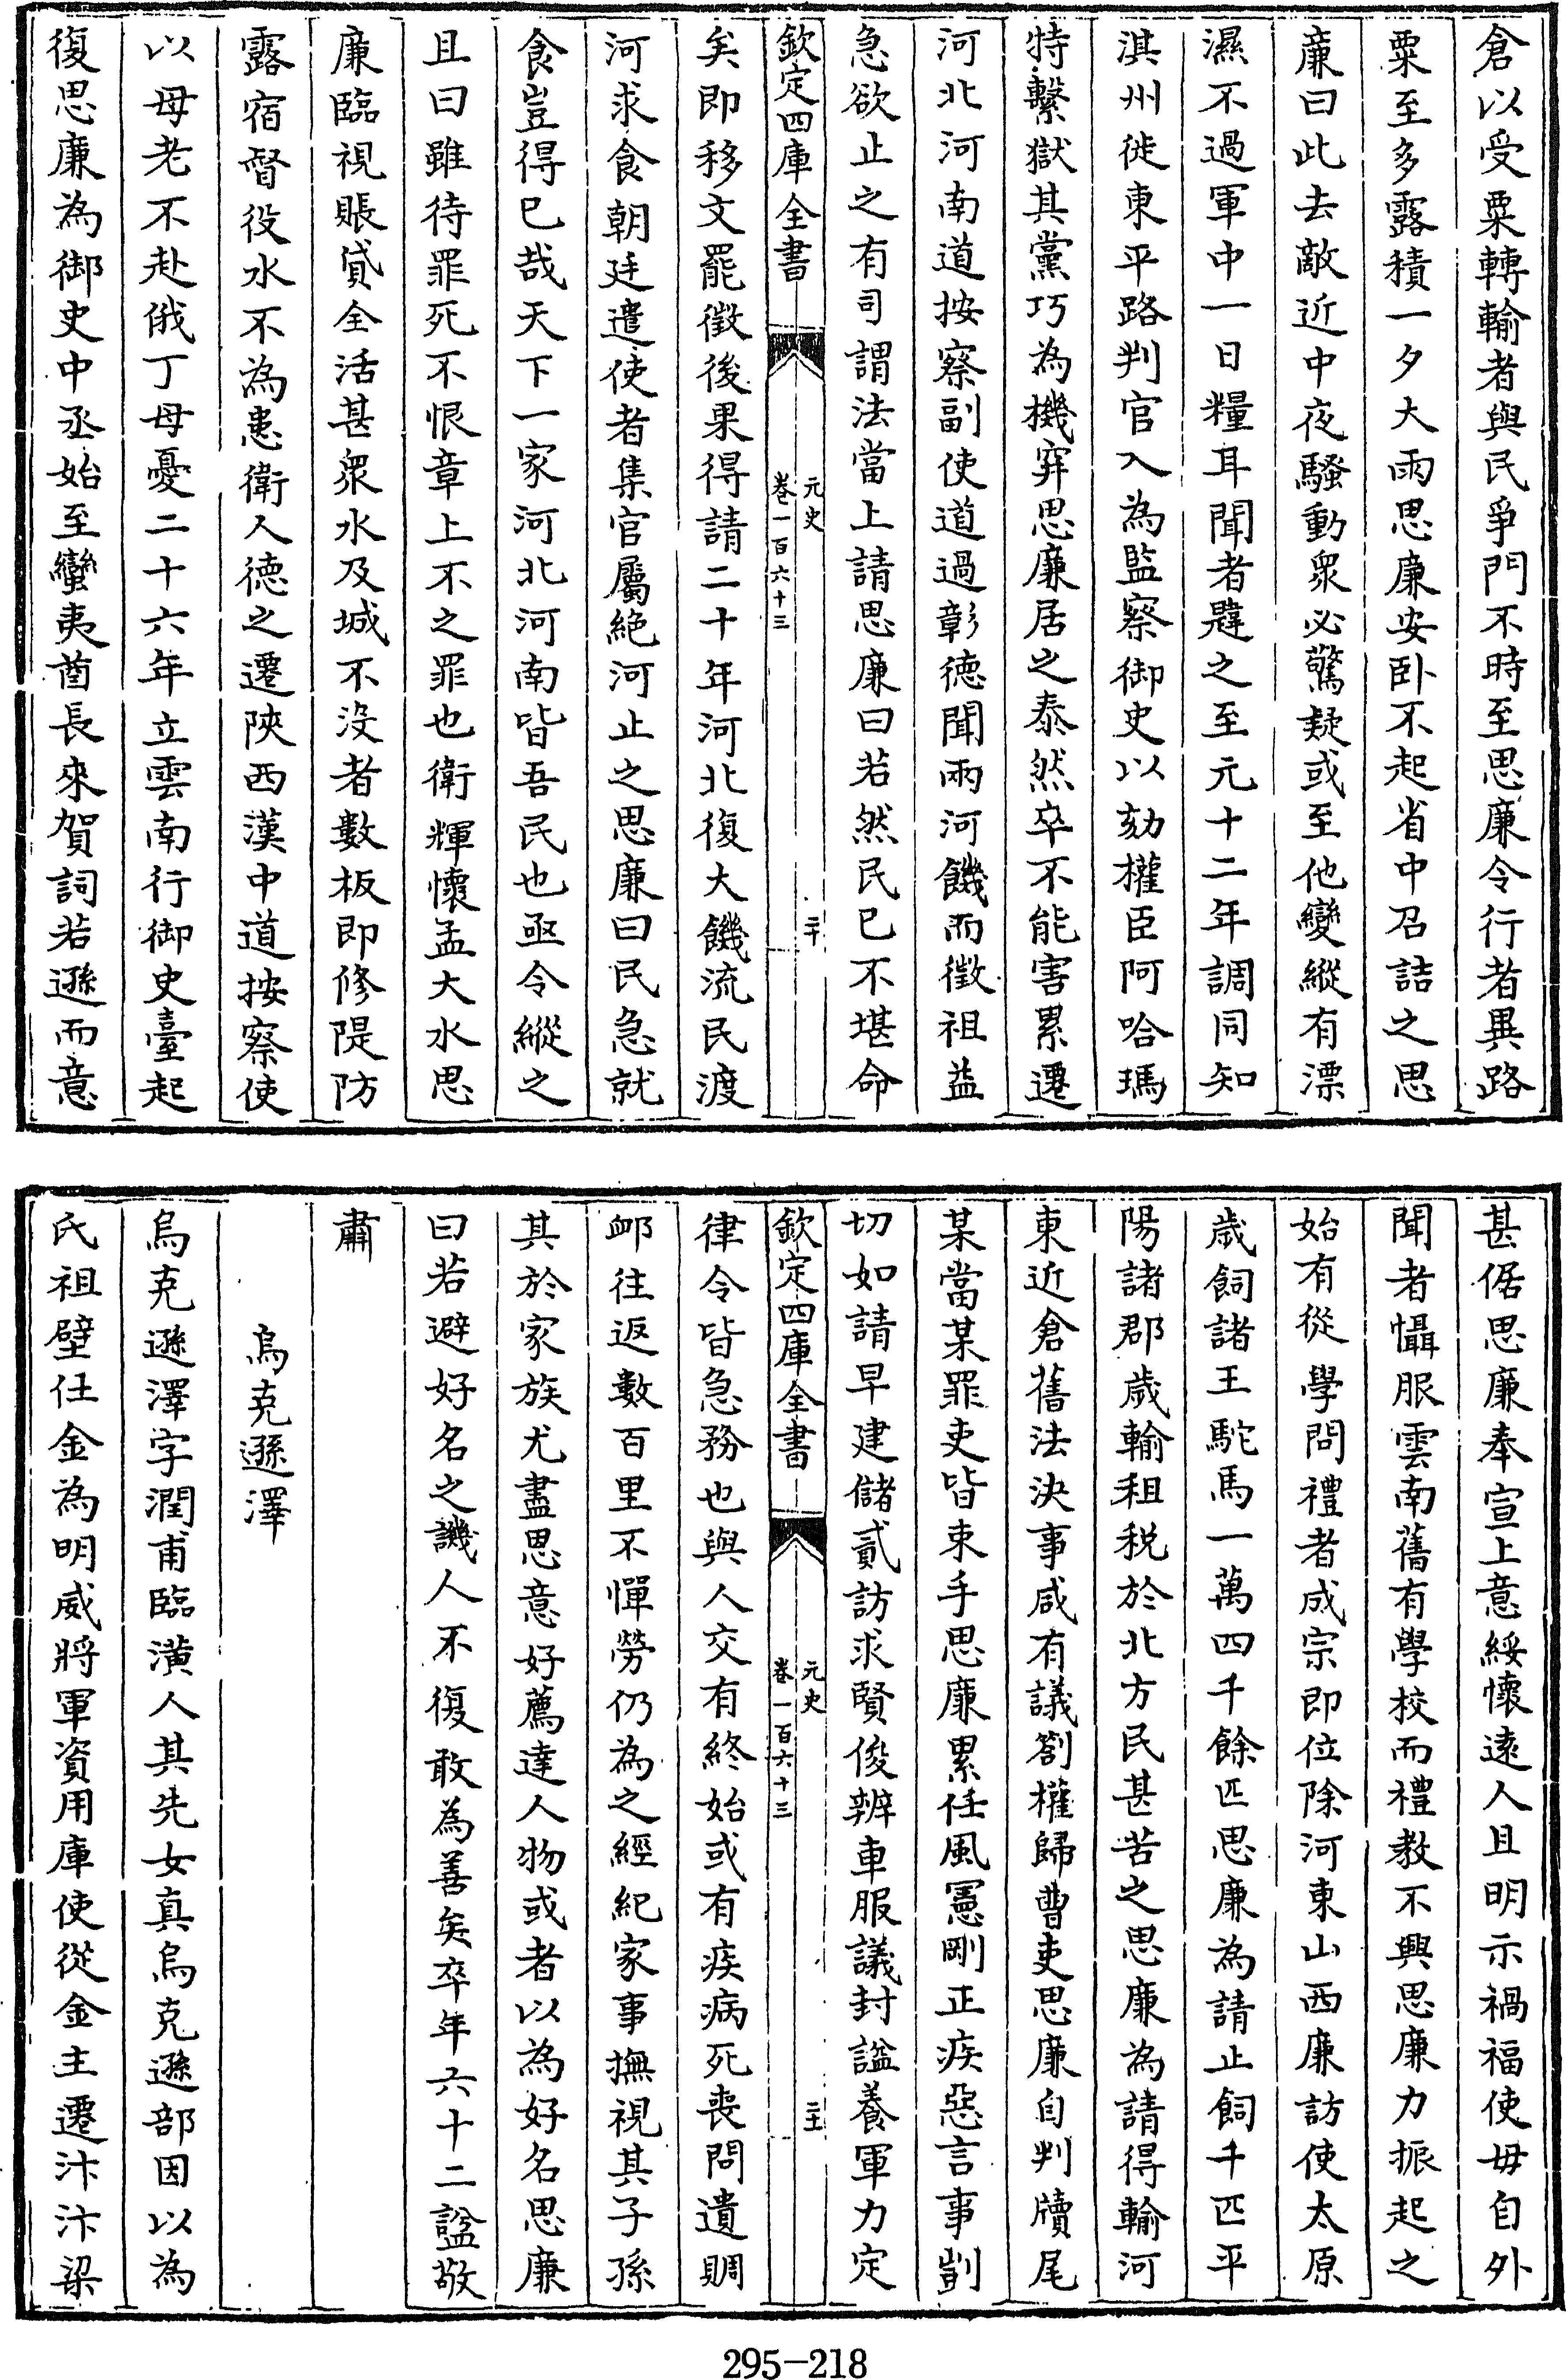 倉以受粟轉輸者與民爭門不時至思廉令行者異路
粟至多露積一夕大雨思廉安卧不起省中召詰之思
廉曰此去敵近中夜騷動衆必驚疑或至他變縱有漂
濕不過軍中一日糧耳聞者韙之至元十二年調同知
淇州徙東平路判官入為監察御史以劾權臣阿哈瑪
特繫獄其黨巧為機穽思廉居之泰然卒不能害累遷
河北河南道按察副使道過彰德聞兩河饑而徵租益
急欲止之有司謂法當上請思廉曰若然民已不堪命
欽定四庫全書
元史
卷一百六十三
二十
矣即移文罷徵後果得請二十年河北復大饑流民渡
河求食朝廷遣使者集官屬絶河止之思廉曰民急就
食豈得已哉天下一家河北河南皆吾民也亟令縱之
且曰雖待罪死不恨章上不之罪也衛輝懷孟大水思
廉臨視賬貸全活甚衆水及城不沒者數板即修隄防
露宿督役水不為患衛人德之遷陜西漢中道按察使
以母老不赴俄丁母憂二十六年立雲南行御史臺起
復思廉為御史中丞始至蠻夷酋長來賀詞若遜而意
甚倨思廉奉宣上意綏懷遠人且明示禍福使毋自外
聞者懾服雲南舊有學校而禮教不興思廉力振起之
始有從學問禮者成宗即位除河東山西廉訪使太原
歲飼諸王駝馬一萬四千餘匹思廉為請止飼千匹平
陽諸郡歲輸租稅於北方民甚苦之思廉為請得輸河
東近倉舊法決事咸有議劄權歸曹吏思廉自判牘尾
某當某罪吏皆束手思廉累任風憲剛正疾惡言事剴
切如請早建儲貳訪求賢俊辨車服議封諡養軍力定
欽定四庫全書
元史
卷一百六十三
二十一
律令皆急務也與人交有終始或有疾病死喪問遺賙
䘏往返數百里不憚勞仍為之經紀家事撫視其子孫
其於家族尤盡思意好薦達人物或者以為好名思廉
曰若避好名之譏人不復敢為善矣卒年六十二諡敬
肅
烏克遜澤
烏克遜澤字潤甫臨潢人其先女真烏克遜部因以為
氏祖璧仕金為明威將軍資用庫使從金主遷汴汴梁
295-218